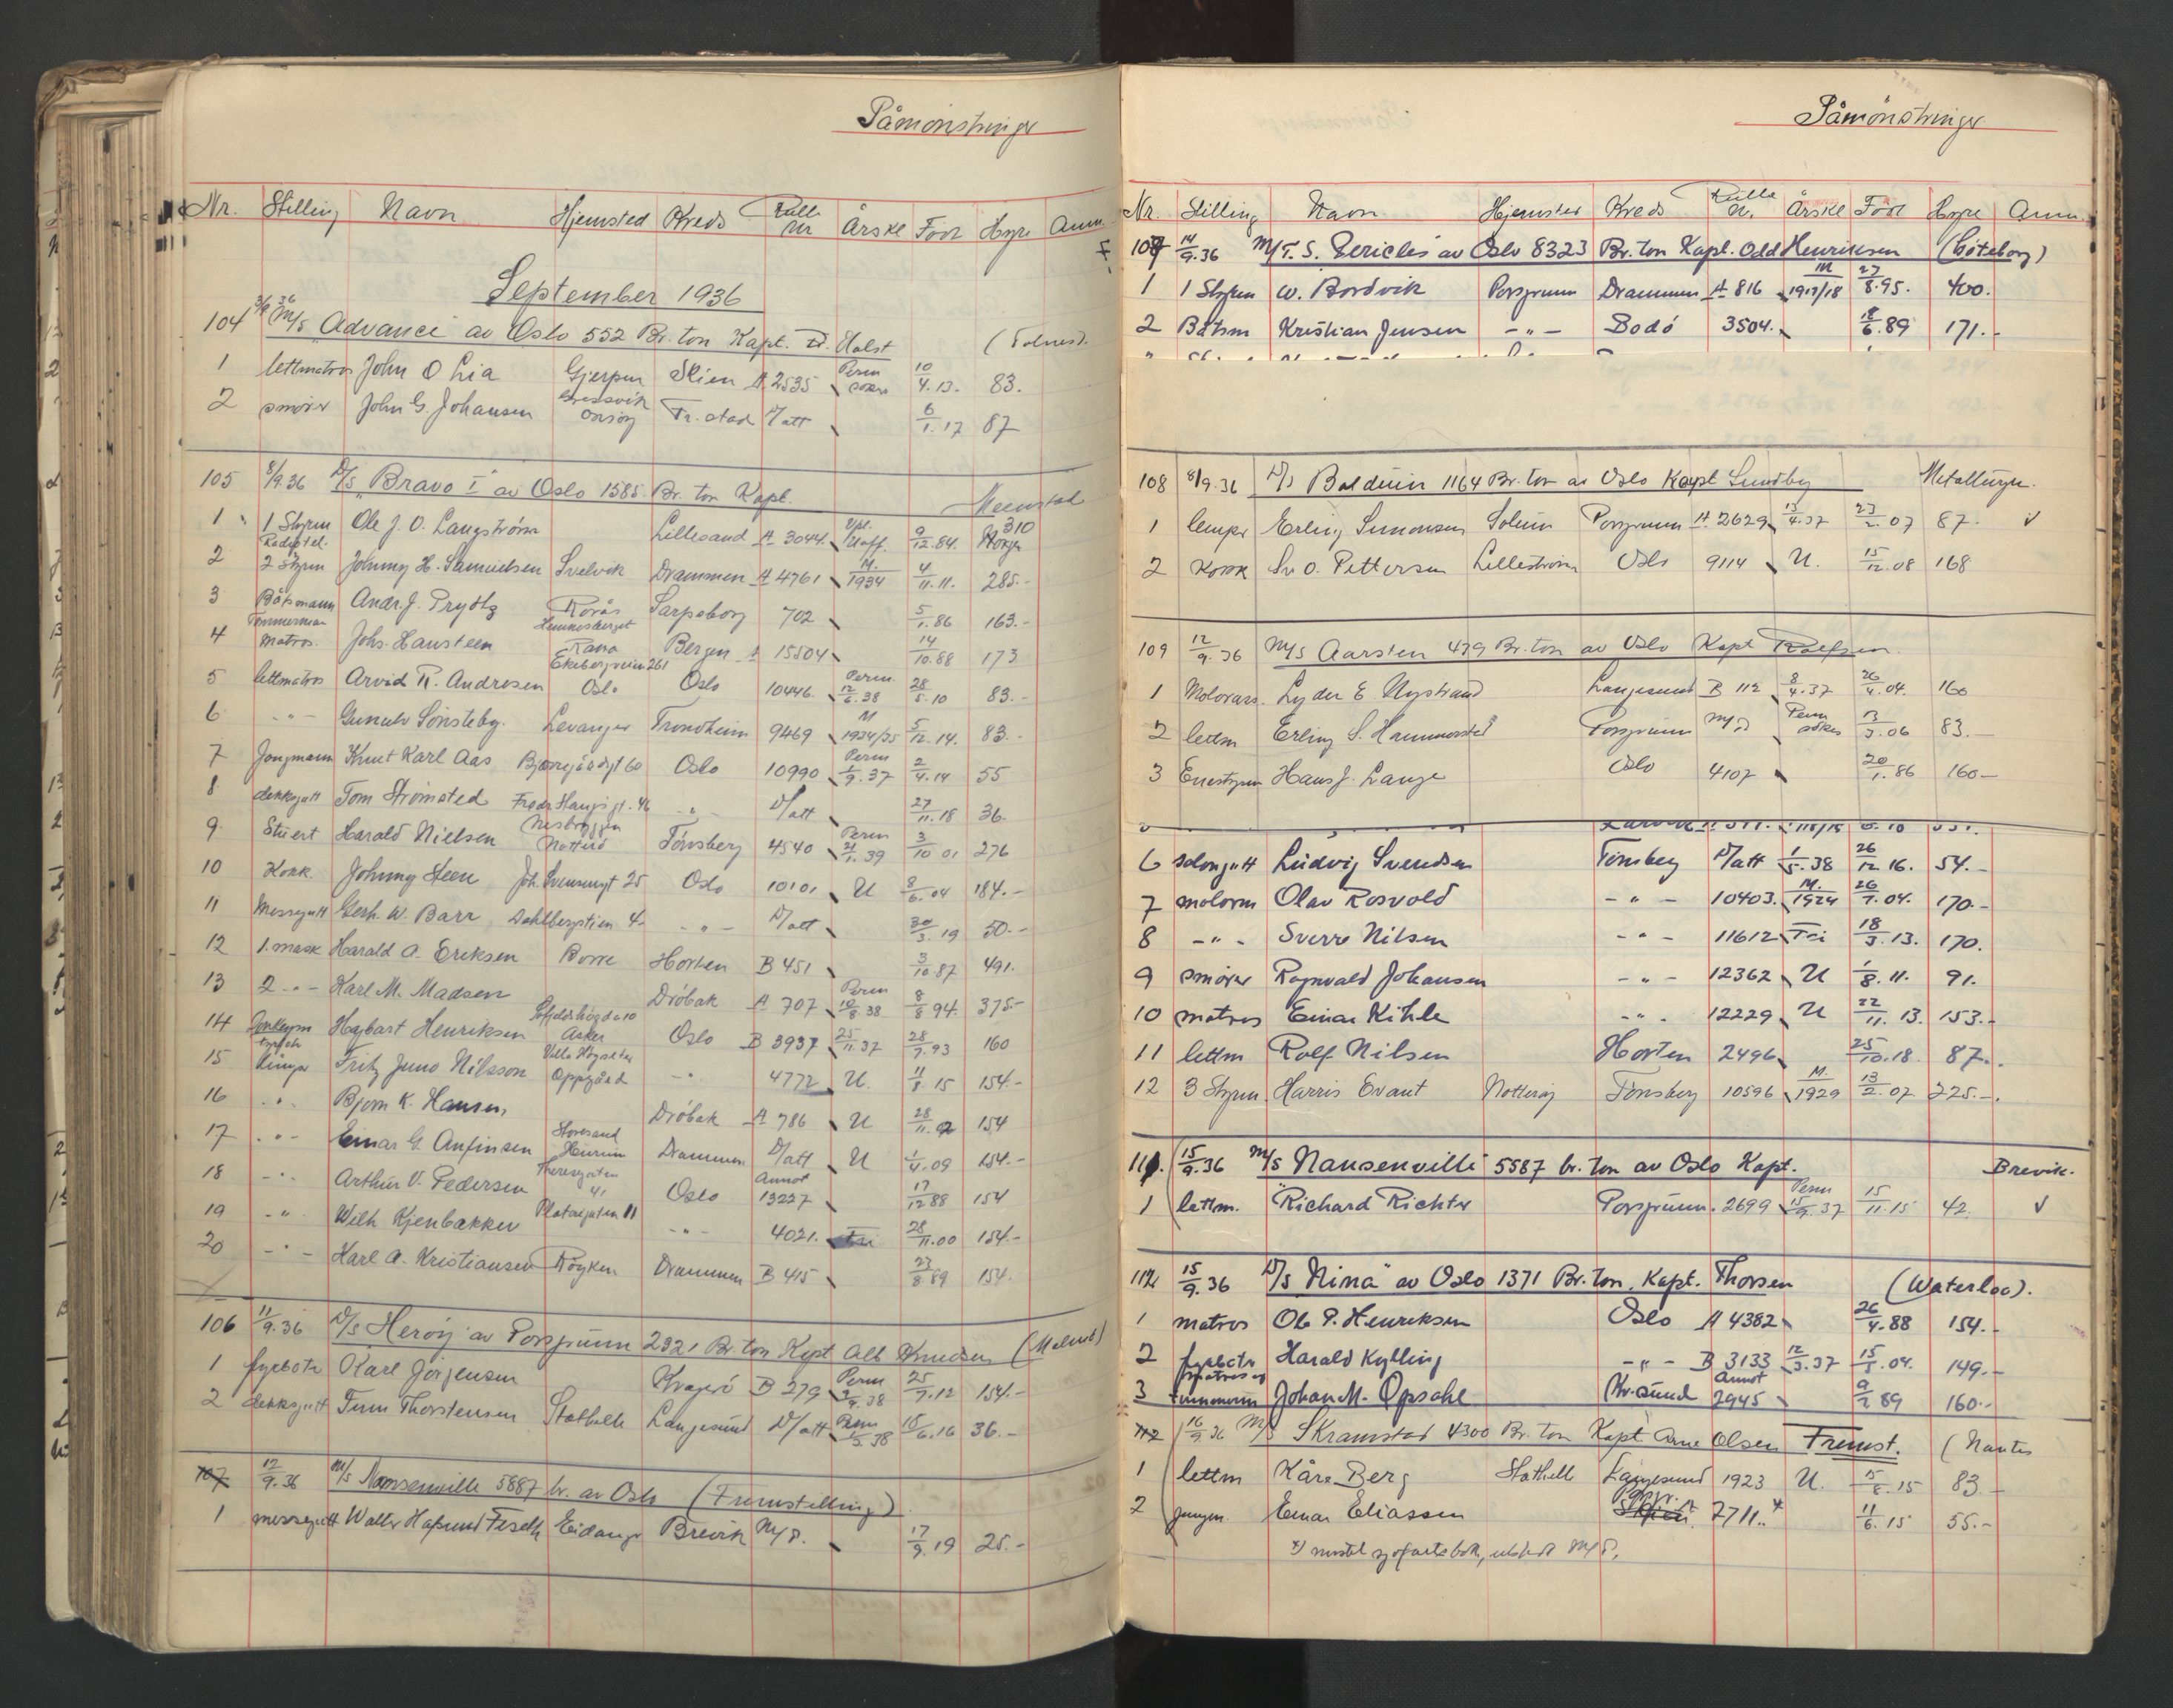 Påmönstringer
Nr. Stilling Navn Hjemsted Kreds Rulle nr Årskl Født Hyre Anm.
September 1936
104 3/9 36 M/S "Advance" av Oslo 552 Br. ton Kapt. Holst
1 lettmatros John O Lia Gjerpen Skien A 2535 Perm 10/4.13. 83.
2 smörer John G. Johansen Gressvik Onsöy Fr.stad D/att 6/1.17 87
105 8/9.36 D/S "Bravo I" av Oslo 1585 Br. ton Kapt.
1 1 Styrm Ole J. O. Langström Lillesand A 3044. 9/12.84. 310
2 Radiotel. 2 Styrm Johnny H. Samuelsen Svelvik Drammen A 4761 M. 1934 4/11.11. 285.-
3 Båtsmann Andr. J. Prydtz Sarpsborg 702 5/1.86 163.-
4 Tömmerman matros. Johs. Hansteen Hemnesberget Rana Bergen A 15504 14/10.88 173
5 lettmatros Arvid R. Andresen Ekebergveien 261 Oslo Oslo 10446. Perm. 12/6.38 28/5.10 83.-
6 -"- Gunulv Sönsteby. Levanger Trondheim 9469 M 1934/35 5/12.14. 83.-
7 Jungmann Knut Karl Aas Bjerregårdsgt 60 Oslo 10990 Perm 1/9.37 2/4.14 55
8 dekksgutt Tom Strömsted Fredr Haugs gt. 46 -"- D/att 27/11.18 36.
9 Stuert Harald Nielsen Nesbryggen Nötterö Tönsberg 4540 Perm 21/1.39 3/10 01 276
10 Kokk. Johnny Steen Joh. Svensengt 25 Oslo 10101 U 8/6.04 184.-
11 Messegutt Gerh. W. Barr Dahlbergstien 4 -"- D/att 30/3.19 50.-
12 1. mask Harald A. Eriksen Borre Horten B 451 3/10.87 491.
13 2 -"- Karl M. Madsen Dröbak A 707 Perm 10/8.38 8/8 94. 375-
14 Hagbart Henriksen Asker Oslo B 3937 25/11.37 28/7.93 160
15 Fritz Juno Nilsson Oppgård -"- 4772 U. 11/8 15 154.-
16 -"- Bjorn K. Hansen Dröbak A 786 U 28/11. 154
17 -"- Einar G. Anfinsen Storsand Hurum Drammen D/att U 1/4.09 154.-
18 -"- Arthur V. Pedersen Theresgaten 41 Oslo Annot 13227 17/12 88 154
19 -"- Wilh Kjenbakken Platousgaten 11 -"- 4021. Fri 28/11.00 154.-
20 -"- Karl A. Kristiansen Röyken Drammen B 415 23/8 89 154.
106 11/9.36 D/S "Heröy" av Porsgrunn 2321 Br. ton Kapt Alb Knudsen (Malmö)
1 fyrböter Karl Jörgensen Kragerö B 279 Perm 2/9.38 25/7.12 154.-
2 dekksgutt Finn Thorstensen Stathelle Langesund D/att Perm 1/5.38 16/6.16 36.-
107 12/9.36 M/S Nansenville 5587 br. av Oslo (Fremstilling)
1 messegutt Walter Hafsund Feseth Eidanger Brevik M/P. 17/9.19 25.-
Påmönstringer
Nr. Stilling Navn Hjemsted Kreds Rulle nr. Årskl Født Hyre Anm.
107 14/9.36 M/T. S. Pericles av Oslo 8323 Br. ton Kapt. Odd Henriksen (Göteborg)
1 1 Styrm W. Bordvik Porsgrunn Drammen A 816 M 1917/18 27/8.95. 400.
2 Båtsm Kristian Jensen -"- Bodö 3504. 18/6.89 171.-
108 8/9.36 D/S Balduin 1164 Br. ton av Oslo Kapt Lundby
1 lemper Erling Simonsen Solum Porsgrunn A 2629 13/4.37 23/2.07 87.- v
2 Kokk Sv. O. Pettersen Lilleström Oslo 9114 U. 15/12.08 168
109 12/9.36 M/S Aarsten 439 Br. ton av Oslo Kapt
1 Motorass. Lyder E Nystrand Langesund B 112 8/4.37 26/4.04. 160
2 lettm Erling S. Hammerstad Porsgrunn M/P Perm sökes 13/3.06 83.-
3 Enestyrm Hans J. Lange Oslo 4107 20/1.86 160-
6 salongutt Ludvig Svendsen Tönsberg D/att 1/5.38 26/12 16. 54.-
7 motorm Olav Rosvold -"- 10403. M. 1924 26/7.04. 170.-
8 -"- Sverre Nilsen -"- 11612 Fri 18/3.13. 170.
9 smörer Ragnvald Johansen -"- 12362 U 1/8.11. 91.
10 matros Einar Kihle -"- 12229 U 22/11.13. 153.-
11 lettm Rolf Nilsen Horten 2496 25/10.18. 87.
12 3 Styrm. Harris Evant Nötteröy Tönsberg 10596 M. 1929 13/2.07 225.-
111. 15/9.36 M/S Nansenville 5587 br. ton av Oslo Kapt. Brevik.
1 lettm. Richard Richter Porsgrunn. 2699 Perm 15/9.37 15/11.15 42. v
112 15/9.36 D/S "Nina" av Oslo 1371 Br. ton. Kapt. Thorsen (Waterloo).
1 matros Ole P. Henriksen Oslo A 4382 26/4.88 154.-
2 fyrböter Harald Kylling -"- B 3133 12/3.37 15/1.04. 149.-
3 matros og tömmerm Johan M. Opsahl Kr.sund Annot 2945 9/2 89 160.-
112 16/9.36 M/S Skramstad 4300 Br. ton Kapt. Arne Olsen Fremst. (Nantes
1 lettm Kåre Berg Stathelle Langesund 1923 U. 15/8.15 83-
2 jungm. Einar Eliassen Porsgr. Skien A 7711. x 11/6.15 55.-
x) mistet sjöfartsbok, utstedt M/P.